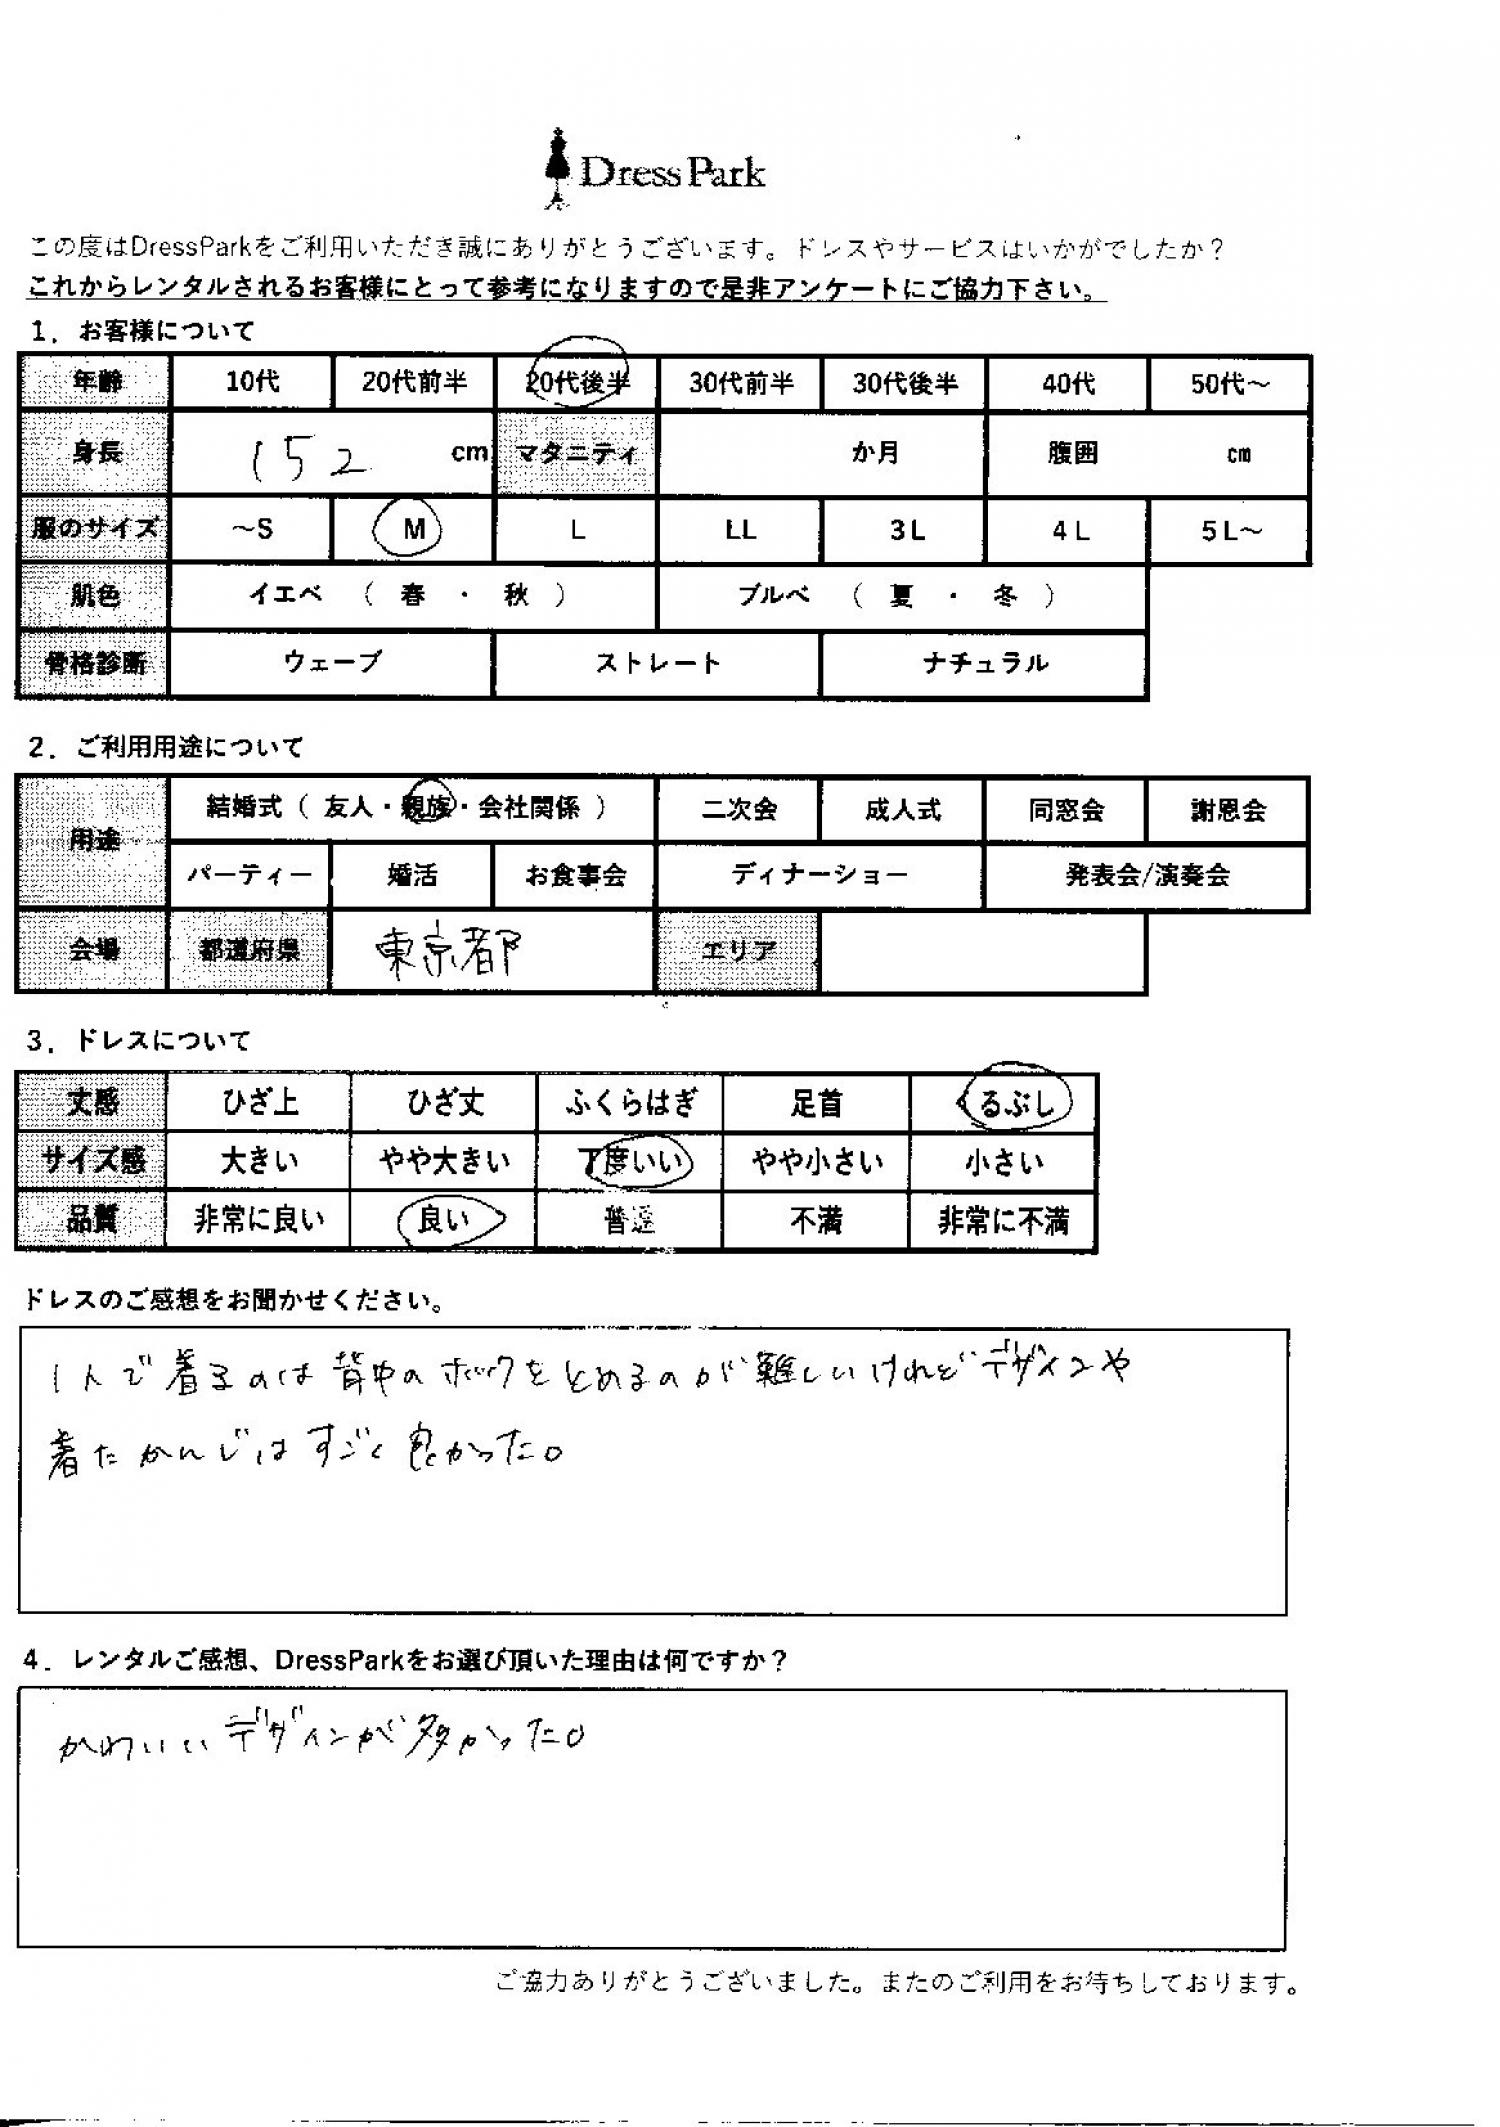 DressPark
この度はDressParkをご利用いただき誠にありがとうございます。ドレスやサービスはいかがでしたか？
これからレンタルされるお客様にとって参考になりますので是非アンケートにご協力下さい。
1．お客様について
年齢 10代 20代前半 20代後半 30代前半 30代後半 40代 50代～
身長 152 cm マタニティ か月 腹囲 cm
服のサイズ ～S M L LL 3L 4L 5L～
肌色 イエベ （ 春 ・ 秋 ） ブルベ （ 夏 ・ 冬 ）
骨格診断 ウェーブ ストレート ナチュラル
2．ご利用用途について
用途 結婚式（ 友人・親族・会社関係 ） 二次会 成人式 同窓会 謝恩会
パーティー 婚活 お食事会 ディナーショー 発表会/演奏会
会場 都道府県 東京都 エリア
3．ドレスについて
丈感 ひざ上 ひざ丈 ふくらはぎ 足首 くるぶし
サイズ感 大きい やや大きい 丁度いい やや小さい 小さい
品質 非常に良い 良い 普通 不満 非常に不満
ドレスのご感想をお聞かせください。
1人で着るのは背中のホックをとめるのが難しいけれどデザインや
着たかんじはすごく良かった。
4．レンタルご感想、DressParkをお選び頂いた理由は何ですか？
かわいいデザインが多かった。
ご協力ありがとうございました。またのご利用をお待ちしております。